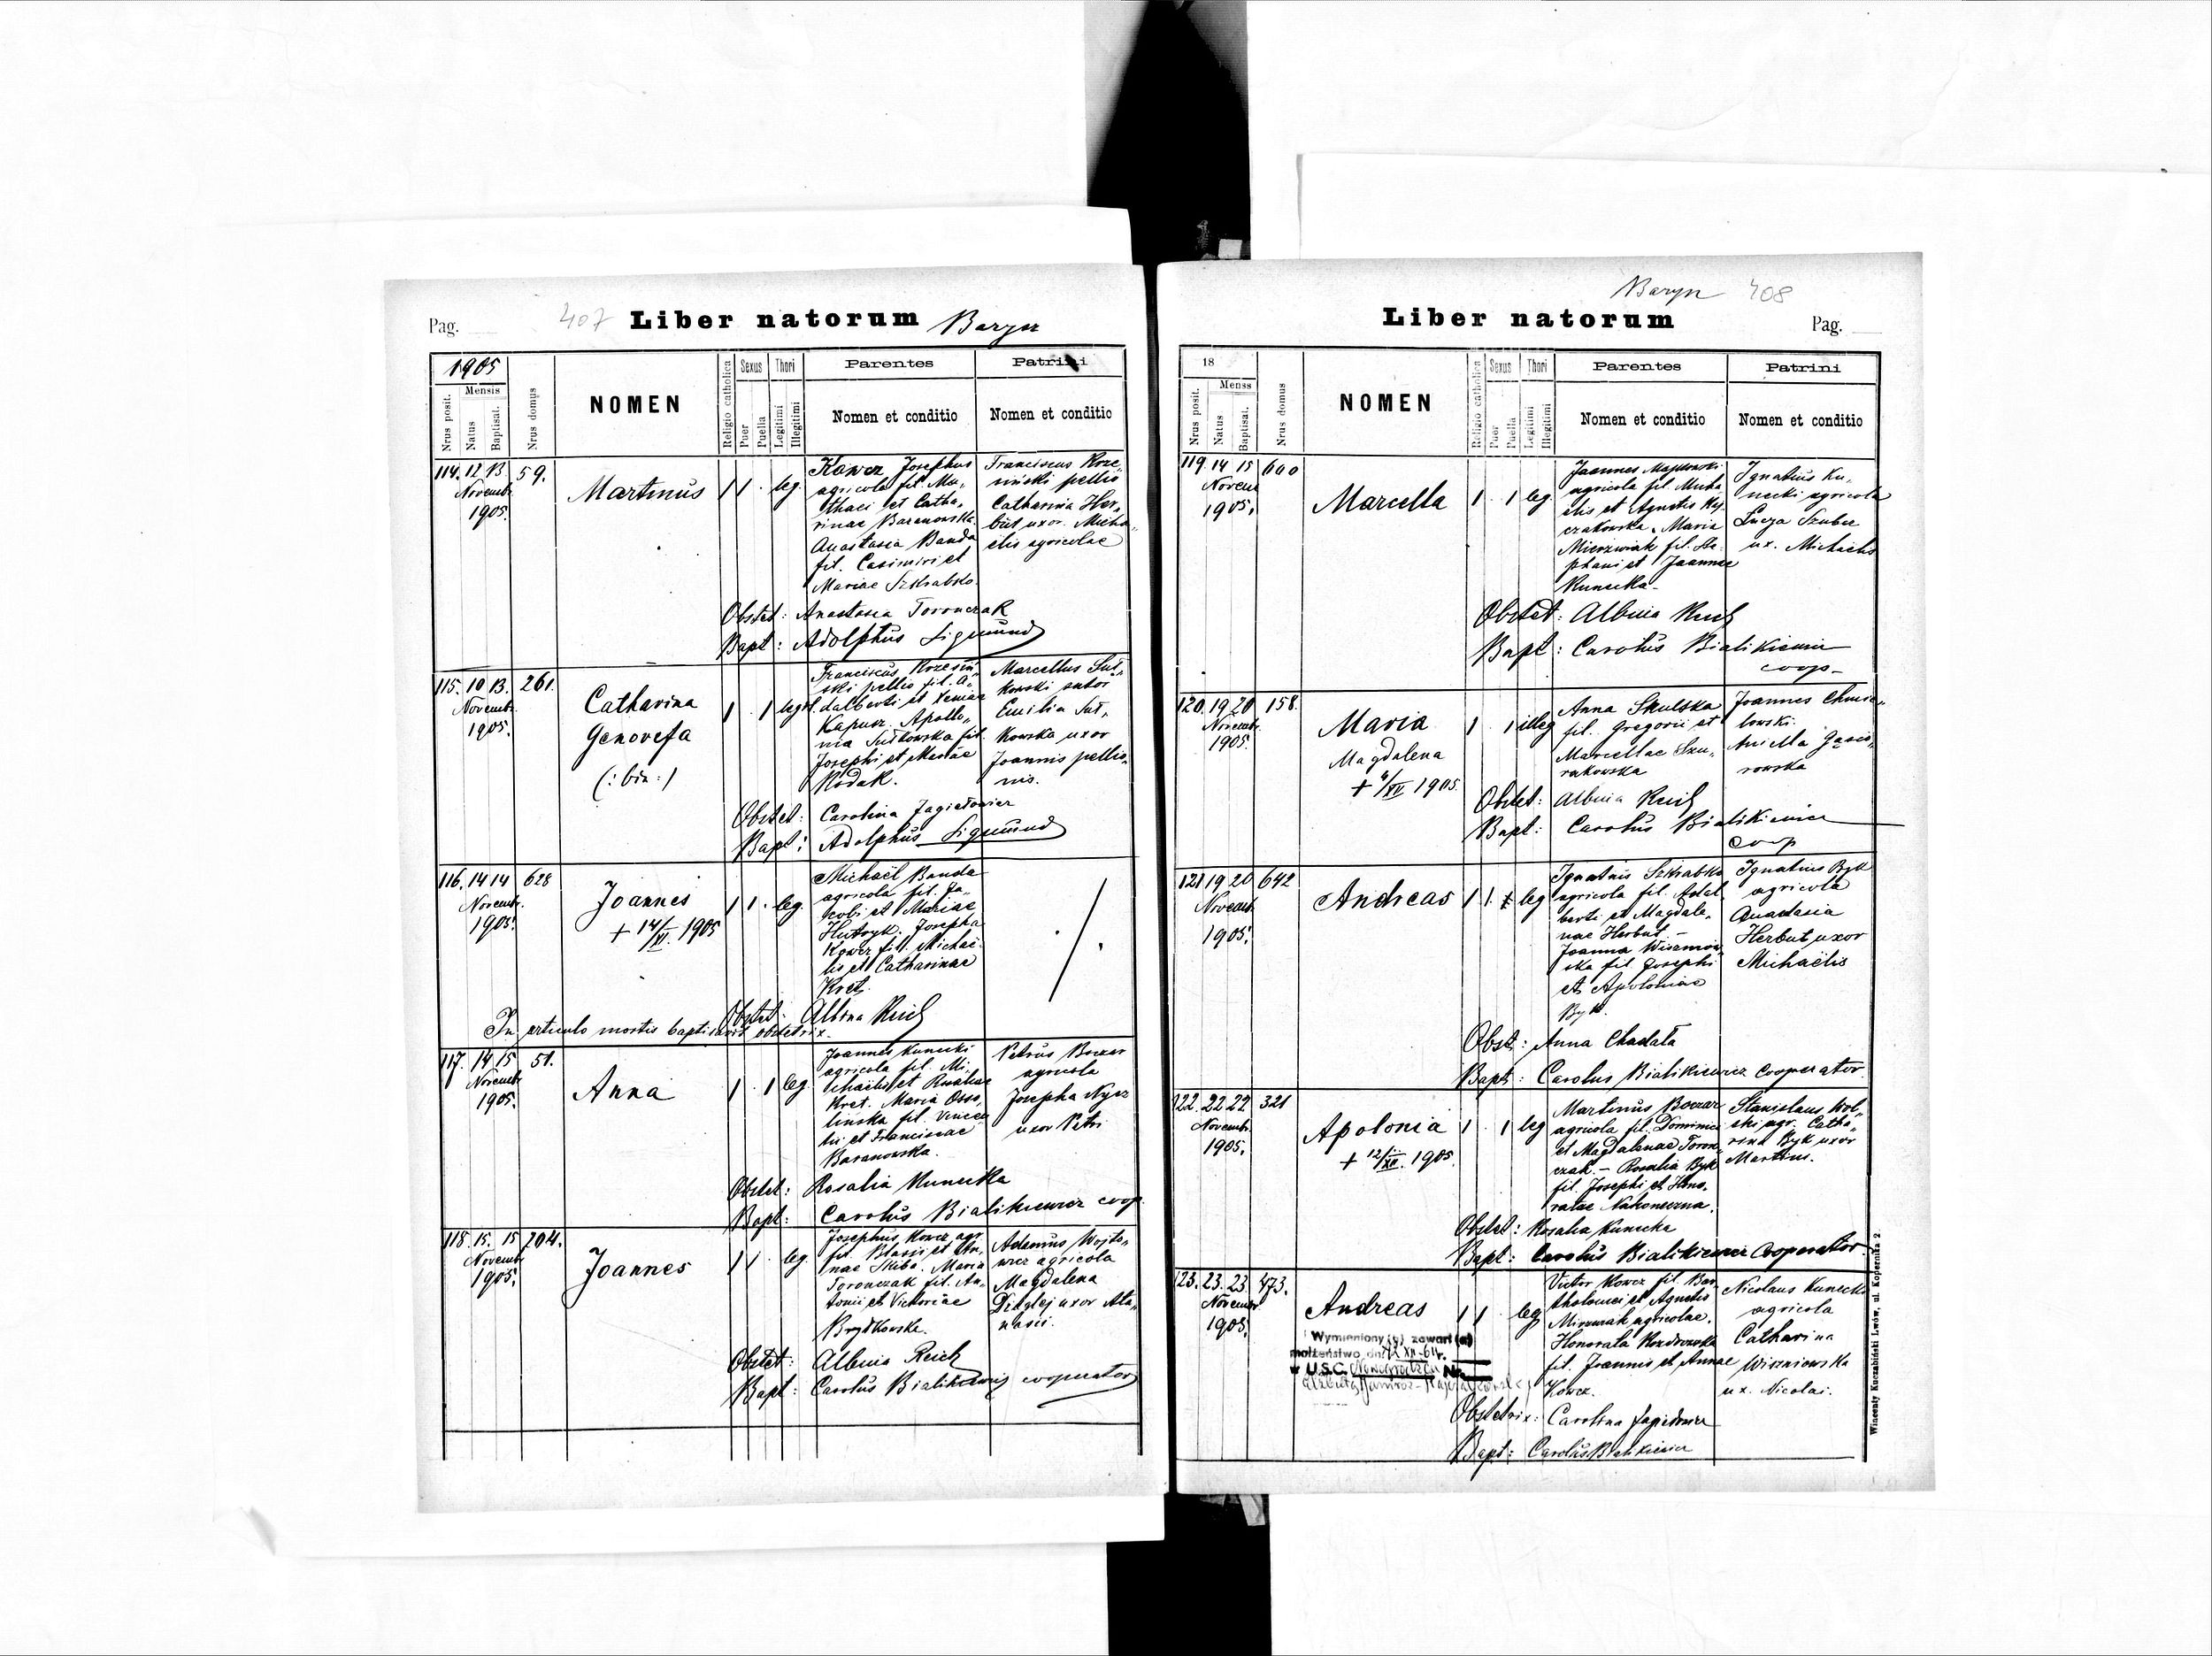 Pag.
407
Liber natorum
Barysz
1905
Mensis
Nrus posit.
Natus
Baptisat.
Nrus domus
NOMEN
Religio catholica
Sexus
Puer
Puella
Thori
Legitimi
Illegitimi
Parentes
Nomen et conditio
Patrini
Nomen et conditio
114. 12 13 59.
Novemb.
1905.
Martinus
1 1 . leg.
Kowcz Josephus
agricola fil. Ma„
thaei et Catha„
rinae Baranowska.
Anastasia Banda
fil. Casimiri et
Mariae Szkrabko.
Franciscus Krze„
siński pellio
Catharina Her„
but uxor Micha„
elis agricolae
Obstet: Anastasia Toronczak
Bapt: Adolphus Sigmund
115. 10 13. 261.
Novemb.
1905.
Catharina
Genovefa
(: bin :)
1 . 1 leg.
Franciscus Krzesiń„
ski pellio fil. A„
dalberti et Xeniae
Kapusz. Apollo„
nia Sutkowska fil.
Josephi et Mariae
Rodak.
Marcellus Sut„
kowski sutor
Emilia Sut„
kowska uxor
Joannis pellio„
nis.
Obstet: Carolina Jagiełowicz
Bapt: Adolphus Sigmund
116. 14 14 628
Novemb.
1905.
Joannes
+ 14/XI. 1905
1 1 . leg.
Michaël Banda
agricola fil. Ja„
cobi et Mariae
Hutryk. Josepha
Kowcz fil. Michaë„
lis et Catharinae
Kret.
Obstet: Albina Reich
In articulo mortis baptisavit obstetrix.
117. 14 15 51.
Novemb.
1905.
Anna
1 . 1 leg.
Joannes Kunecki
agricola fil. Mi„
chaëlis et Rosaliae
Kret. Maria Osso„
linska fil. Vincen
tii et Franciscae
Baranowska.
Petrus Boczar
agricola
Josepha Nycz
uxor Petri
Obstet: Rosalia Kunecka
Bapt: Carolus Bialikiewicz coop.
118. 15. 15 204.
Novemb.
1905.
Joannes
1 1 . leg.
Josephus Kowcz agr.
fil. Blasii et An„
nae Skiba. Maria
Toronczak fil. An„
tonii et Victoriae
Brydkowska.
Adamus Wojto„
wicz agricola
Magdalena
uxor Ata„
nasii.
Obstet: Albina Reich
Bapt: Carolus Bialikiewicz cooperator
Barysz 408
Liber natorum
Pag.
18
Menss
Nrus posit.
Natus
Baptisat.
Nrus domus
NOMEN
Religio catholica
Sexus
Puer
Puella
Thori
Legitimi
Illegitimi
Parentes
Nomen et conditio
Patrini
Nomen et conditio
119. 14 15 600
Novemb
1905.
Marcella
1 . 1 leg.
Joannes Majkowski
agricola fil. Micha
elis et Agnetis Kij„
czakowska. Maria
Mierzwiak fil. Ste„
phani et Joannae
Kunecka.
Ignatius Ku„
necki agricola
Lucja Szuber
ux. Michaelis
Obstet: Albina Reich
Bapt: Carolus Bialikiewicz
coop.
120. 19 20 158.
Novemb.
1905.
Maria
Magdalena
+ 4/XII 1905.
1 . 1 illeg
Anna Skulska
fil. Gregorii et
Marcellae Szu„
rakowska
Joannes Chmie„
lowski.
Aniella Gąsio„
rowska
Obstet: Albina Reich
Bapt: Carolus Bialikiewicz
coop
121 19 20 642
Novemb.
1905.
Andreas
1 1. leg
Ignatius Szkrabko
agricola fil. Adal„
berti et Magdale„
nae Herbut. -
Joanna Wiszniow„
ska fil. Josephi
et Apoloniae
Byk.
Ignatius Byk
agricola
Anastasia
Herbut uxor
Michaëlis
Obst: Anna Chadała
Bapt: Carolus Bialikiewicz cooperator.
122. 22 22 321
Novemb.
1905.
Apolonia
+ 12/XII. 1905.
1 . 1 leg
Martinus Boczar
agricola fil. Dominici
et Magdalenae Toron„
czak. - Rosalia Byk
fil. Josephi et Hono„
ratae Nakoneczna.
Stanislaus Wol„
ski agr. Catha„
rina Byk uxor
Martini.
Obstet: Rosalia Kunecka
Bapt: Carolus Bialikiewicz Cooperator.
123. 23. 23. 473.
Novemb
1905.
Andreas
1 1 . leg
Victor Kowcz fil. Bar„
tholomei et Agnetis
agricolae.
Honorata
fil. Joannis et Annae
Kowcz.
Nicolaus Kunecki
agricola
Catharina
Wiszniowska
ux. Nicolai.
Wymieniony (a) zawarł (a)
małżeństwo dn. XII-61 r.
w U.S.C. Nr.
Obstetrix: Carolina Jagiełowicz
Bapt: Carolus Bialikiewicz
Wincenty Kuczabiński Lwów, ul. Kopernika 2.